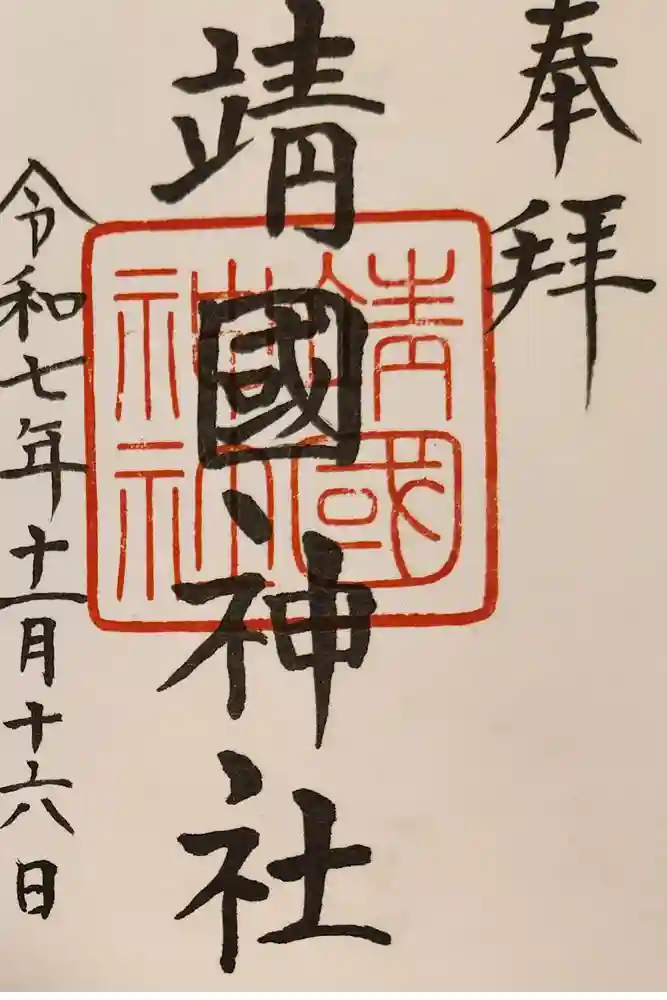 奉拝
靖國神社
靖國神社
令和七年十一月十六日